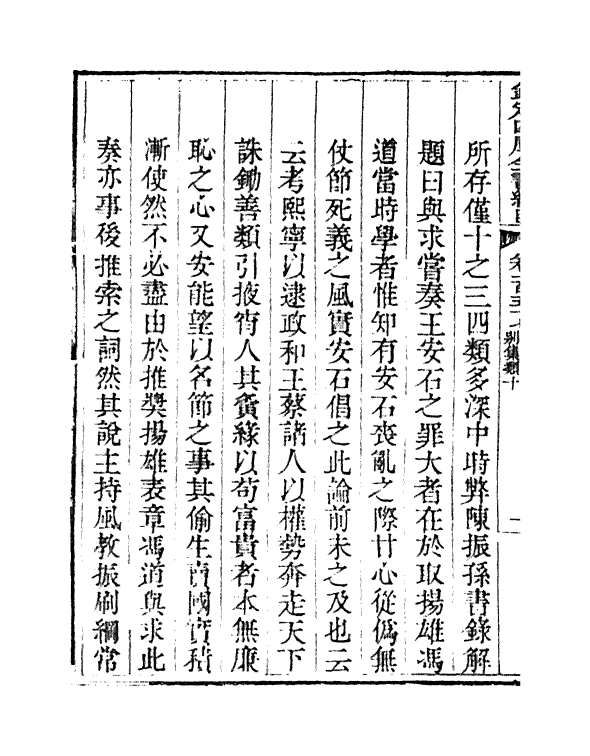 所存僅十之三四類多深中時弊陳振孫書錄解
題曰與求嘗奏王安石之罪大者在於取揚雄馮
道當時學者惟知有安石喪亂之際甘心從僞無
仗節死義之風實安石倡之此論前未之及也云
云考熙寧以逮政和王蔡諸人以權勢奔走天下
誅鋤善類引掖宵人其夤緣以苟富貴者本無廉
恥之心又安能望以名節之事其偷生賣國實積
漸使然不必盡由於推奬揚雄表章馮道與求此
奏亦事後推索之詞然其說主持風教振刷綱常